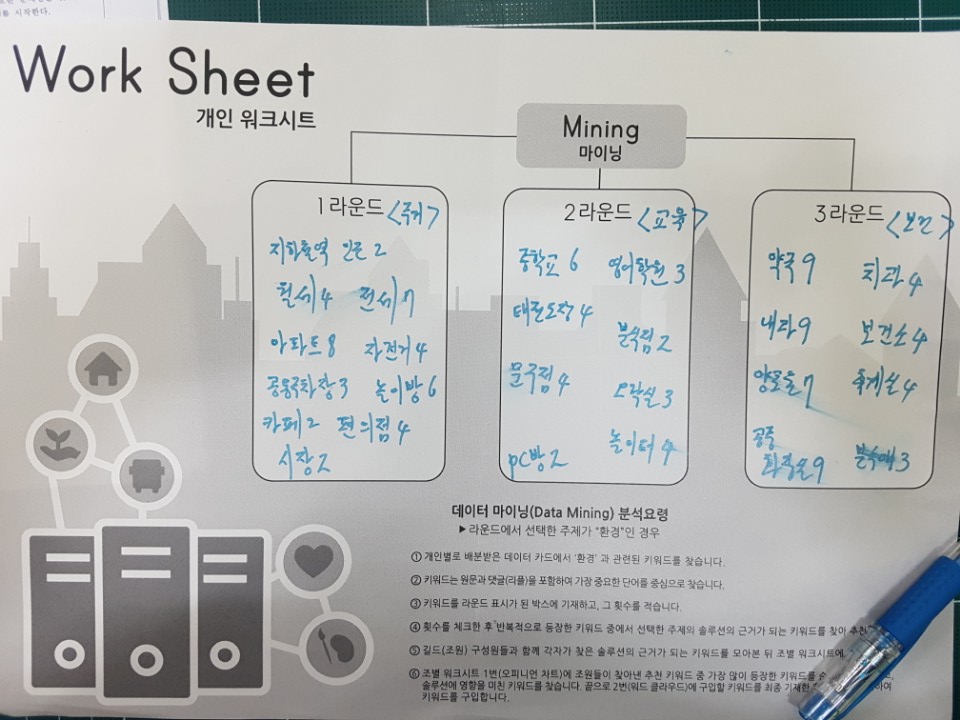 를 시작한다.
Work Sheet
개인 워크시트
Mining
마이닝
1라운드 <주거>
지하철역 인근 2
월세 4 전세 7
아파트 8 자전거 4
공용주차장 3 놀이방 6
카페 2 편의점 4
시장 2
2라운드 <교육>
중학교 6 영어학원 3
태권도장 4
분식점 2
문구점 4
오락실 3
놀이터 4
PC방 2
3라운드 <보건>
약국 9 치과 4
내과 9 보건소 4
7 휴게실 4
공중
화장실 9 3
데이터 마이닝(Data Mining) 분석요령
▶라운드에서 선택한 주제가 "환경"인 경우
① 개인별로 배분받은 데이터 카드에서 '환경' 과 관련된 키워드를 찾습니다.
② 키워드는 원문과 댓글(리플)을 포함하여 가장 중요한 단어를 중심으로 찾습니다.
③ 키워드를 라운드 표시가 된 박스에 기재하고, 그 횟수를 적습니다.
④ 횟수를 체크한 후 반복적으로 등장한 키워드 중에서 선택한 주제의 솔루션의 근거가 되는 키워드를 찾아 추천
⑤ 길드(조원) 구성원들과 함께 각자가 찾은 솔루션의 근거가 되는 키워드를 모아본 뒤 조별 워크시트에
⑥ 조별 워크시트 1번(오피니언 차트)에 조원들이 찾아낸 추천 키워드 중 가장 많이 등장한 키워드를
솔루션에 영향을 미친 키워드를 찾습니다. 끝으로 2번(워드 클라우드)에 구입할 키워드를 최종 기재한 하여
키워드를 구입합니다.